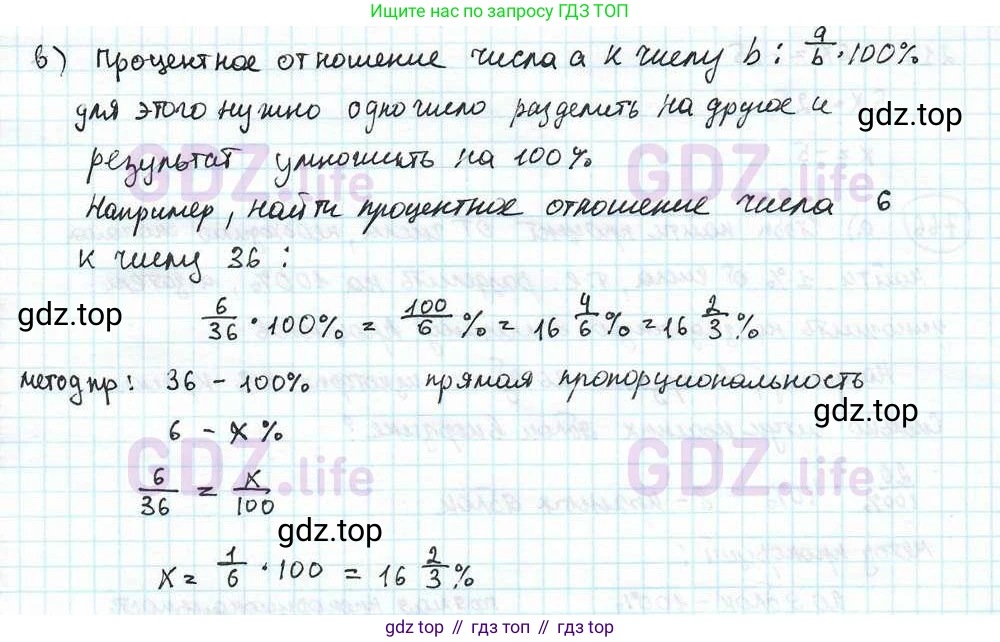 Ищите нас по запросу ГДЗ ТОП
в) Процентное отношение числа a к числу b: a/b · 100%
для этого нужно одно число разделить на другое и
gdz.top
результат умножить на 100%
GDZ.life GDZ.life
Например, найти процентное отношение числа 6
к числу 36:
gdz.top
6/36 · 100% = 100/6 % = 16 4/6 % = 16 2/3 %
метод пр: 36 - 100% прямая пропорциональность
gdz.top
6 - x%
GDZ.life GDZ.life
6/36 = x/100
gdz.top
x = 1/6 · 100 = 16 2/3 %
gdz.top // гдз.топ // gdz.top